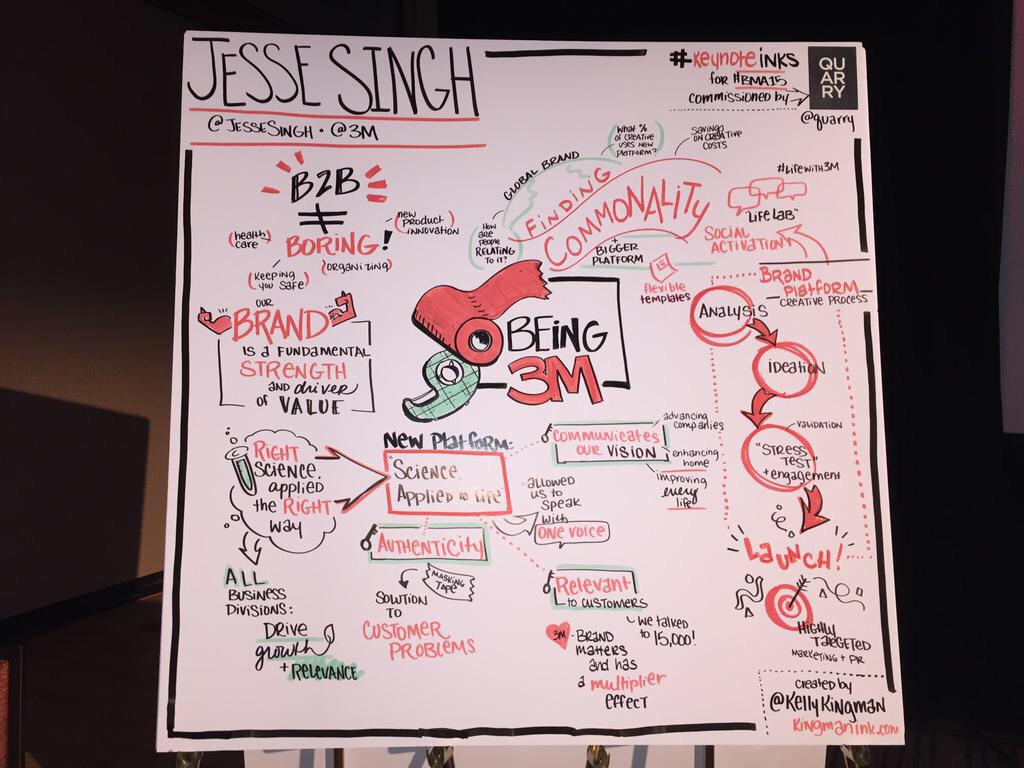 JESSE SINGH
@JESSESINGH · @3M
#keynoteinks
for #BMA15
commissioned by
QU
AR
RY
@quarry
B2B
≠
BORING!
(health care)
(new product innovation)
(keeping you safe)
(organizing)
OUR
BRAND
IS A FUNDAMENTAL
STRENGTH
AND driver
OF VALUE
GLOBAL BRAND
What % of creative uses new platform?
SAVINGS ON CREATIVE COSTS
FINDING
COMMONALITY
How are people RELATING TO IT?
+
BIGGER
PLATFORM
flexible
templates
#LIFEWITH3M
"LIFE LAB"
SOCIAL
ACTIVATION
BEING
3M
BRAND
PLATFORM
CREATIVE PROCESS
ANALYSIS
IDEATION
VALIDATION
"STRESS
TEST"
+ engagement
LAUNCH!
HIGHLY
TARGETED
MARKETING + PR
RIGHT
Science,
applied
the RIGHT
way
ALL
BUSINESS
DIVISIONS:
DRIVE
growth
+ RELEVANCE
NEW PLATFORM:
"Science.
Applied to life"
Communicates
OUR VISION
advancing
companies
enhancing
home
improving
every
life
allowed
us to
speak
with
ONE VOICE
AUTHENTICITY
MASKING
TAPE
SOLUTION
TO
CUSTOMER
PROBLEMS
Relevant
to CUSTOMERS
We talked
to 15,000!
3M
- BRAND
matters
and has
a multiplier
effect
created by
@KellyKingman
kingmanink.com